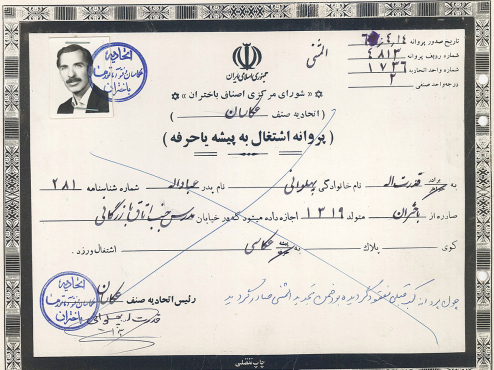 تاریخ صدور پروانه
شماره ردیف پروانه ۴۸۱۳
شماره واحد اتحادیه ۱۸۳۶
درجه واحد صنفی ۲
المثنی
جمهوری اسلامی ایران
« شورای مرکزی اصناف باختران »
(اتحادیه صنف عکاسان)
( پروانه اشتغال به پیشه یا حرفه )
به برادر قدرت‌اله نام خانوادگی پهلوانی نام پدر عبداله شماره شناسنامه ۲۸۱
صادره از باختران متولد ۱۳۱۹ اجازه داده میشود که در خیابان مدرس جنب اتاق بازرگانی
کوی پلاک به پیشه عکاسی اشتغال ورزد .
رئیس اتحادیه صنف عکاسان
چون پروانه کسب قبلی مفقود گردیده بود ضمن تمدید المثنی صادر گردید
اتحادیه
باختران
اتحادیه
باختران
چاپ تفضلی